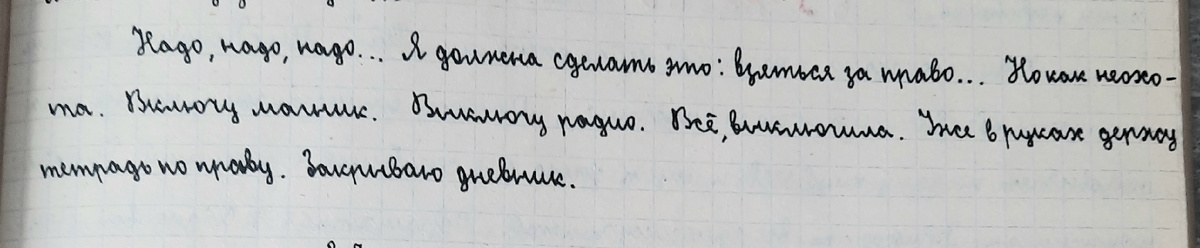 Надо, надо, надо... Я должна сделать это: взяться за право... Но как неохо-
та. Включу магник. Выключу радио. Всё, выключила. Уже в руках держу
тетрадь по праву. Закрываю дневник.